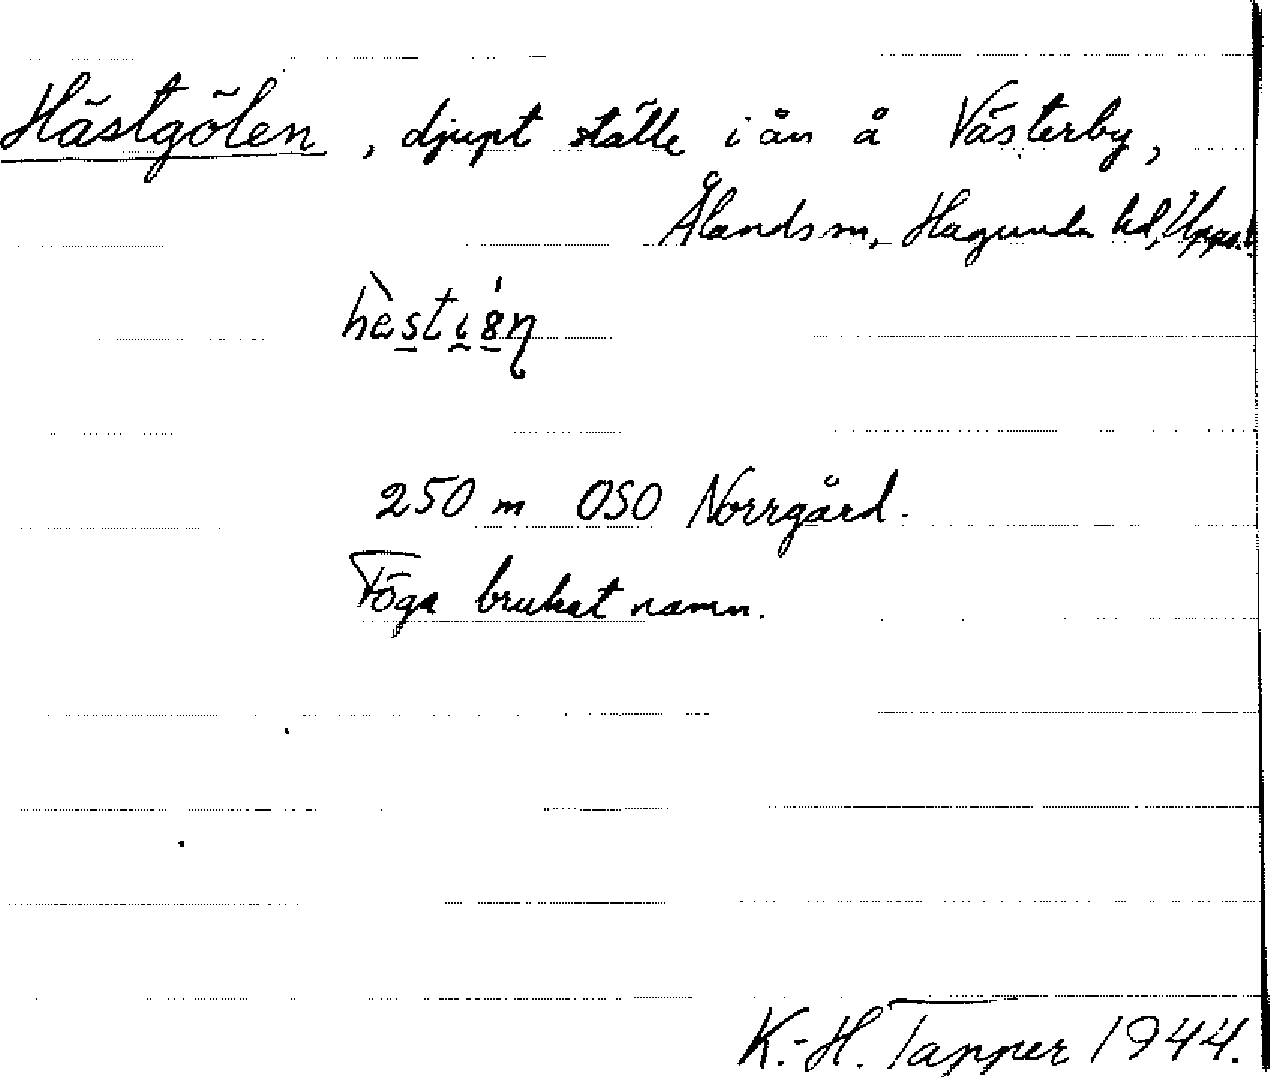 Hästgölen, djupt ställe i ån å Västerby,
Ålands sn, Hagunda hd, Upps. l
250 m OSO Norrgård.
Föga brukat namn.
K.-H. Tapper 1944.